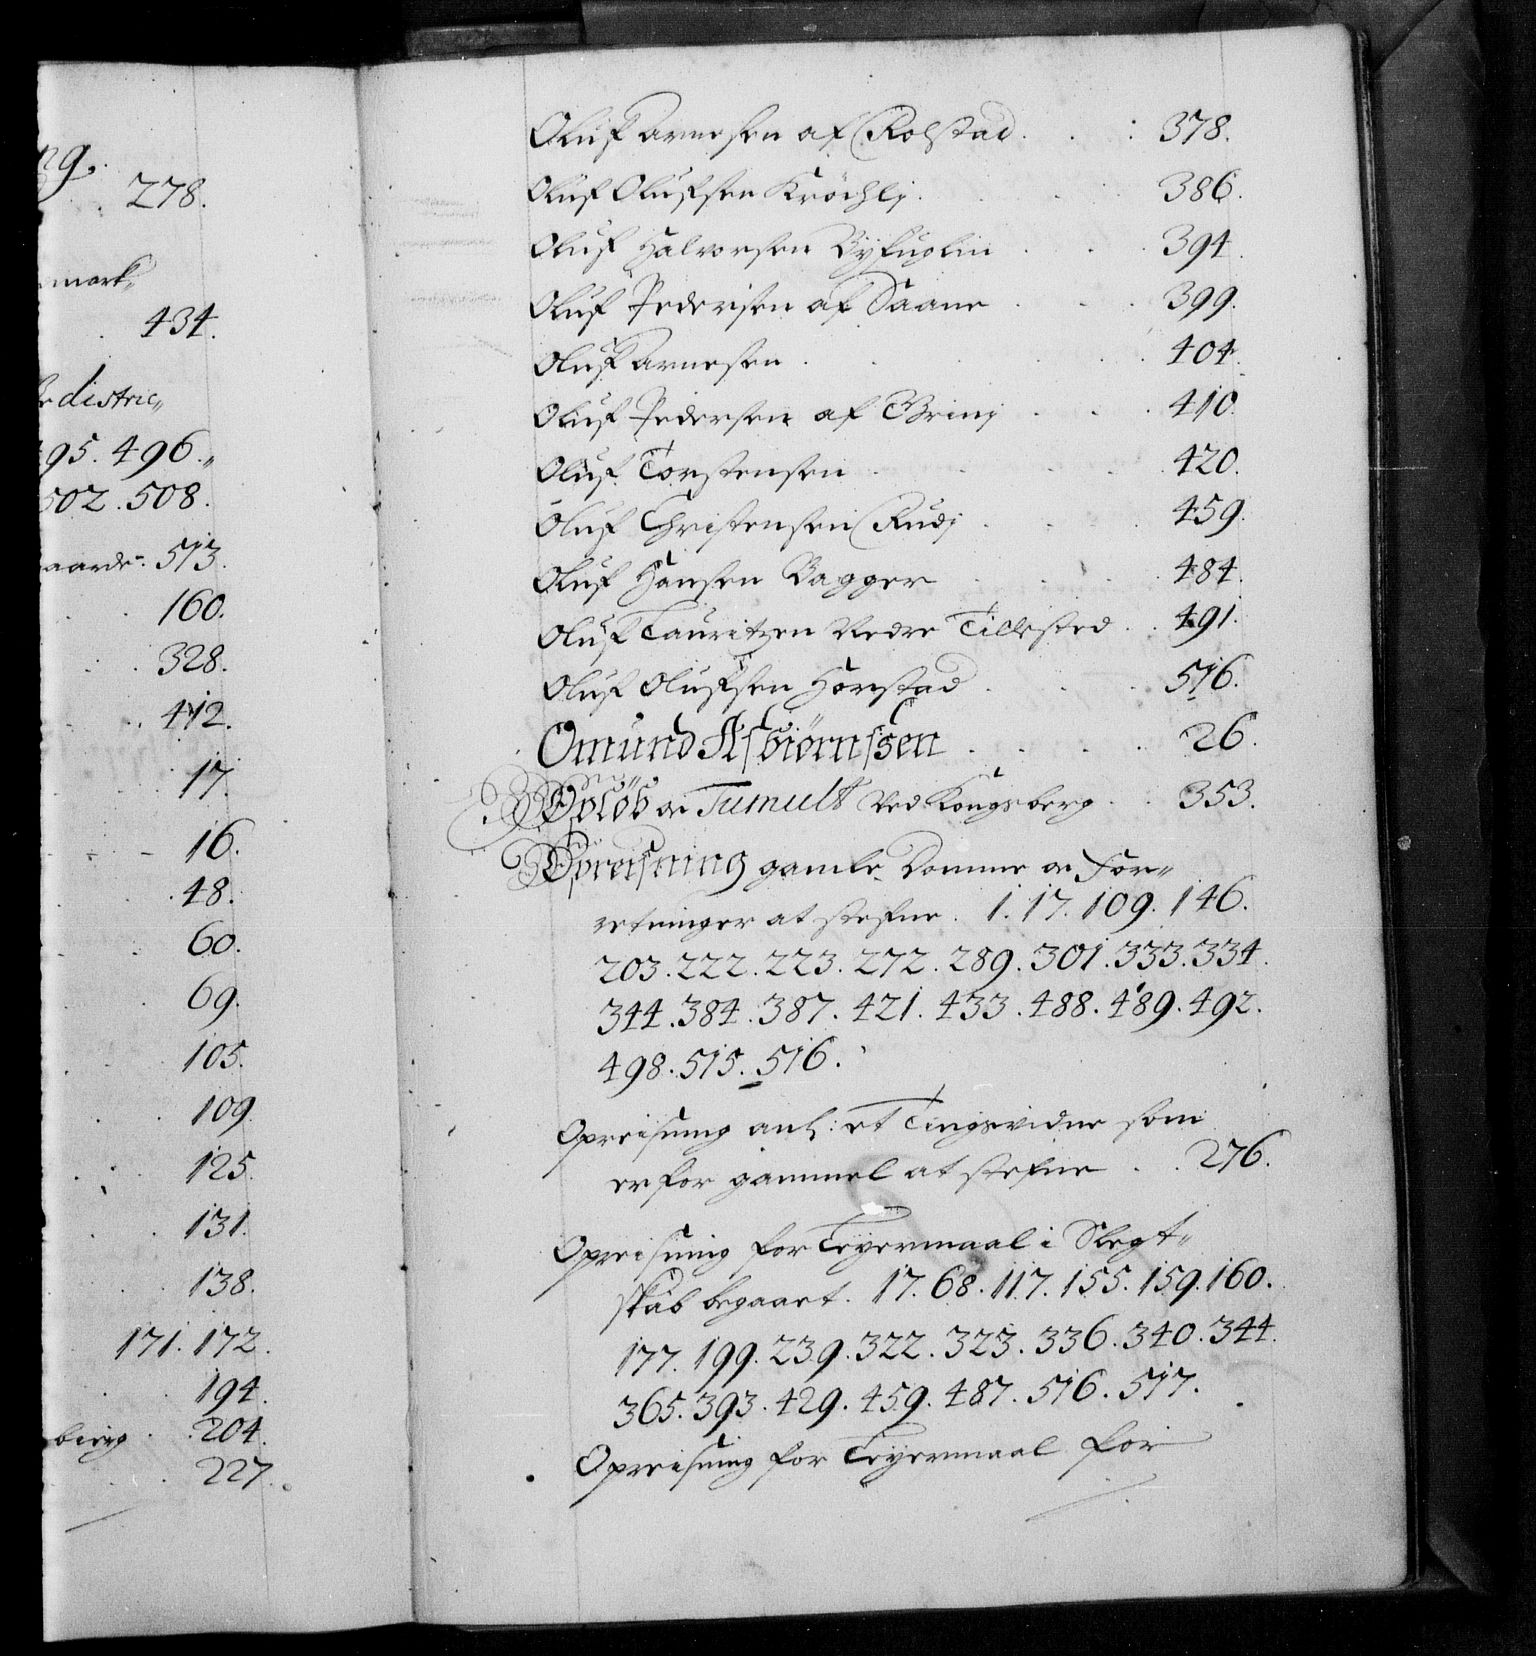 ng.
278.
mark,,
434.
districˮ
495. 496.,,
502. 508.
gaarde. 513.
160.
328.
412.
17.
16.
48.
60.
69.
105.
109.
125.
131.
138.
171. 172.
194.
berg . . 204.
227.
Oluf Arnesen af Rolstad . . : 378.
Oluf Olufsen Kröchlj . . . 386.
Oluf Halvorsen Byfuglin . . . 394.
Oluf Pedersen af Saane . . . 399.
Oluf Arnesen . . . 404.
Oluf Pedersen af Bринj . . . 410.
Oluf Torstensen . . . 420.
Oluf Christensen Rudj . . . 459.
Oluf Hansen Bagger . . . 484.
Oluf Lauritzen Nedre Tillested . . 491.
Oluf Olufsen Horstad . . . 516.
Omund Asbiørnssen . . . . 26.
Opløb og Tumult ved Kongsberg . . 353.
Opreisning gamle Domme og For,,
retninger at stefne . 1. 17. 109. 146.
203. 222. 223. 272. 289. 301. 333. 334.
344. 384. 387. 421. 433. 488. 489. 492.
498. 515. 516.
Opreisning anl: et Tingsvidne som
er for gammel at stefne . . 276.
Opreisning for Leyermaal i Slegt,,
skab begaaet. 17. 68. 117. 155. 159. 160.
177. 199. 239. 322. 323. 336. 340. 344.
365. 393. 429. 459. 487. 516. 517.
Opreisning for Leyermaal for